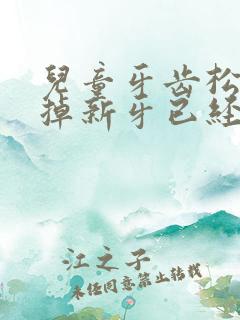 兒童牙齿松
掉新牙已经
江之子
未经同意禁止转载